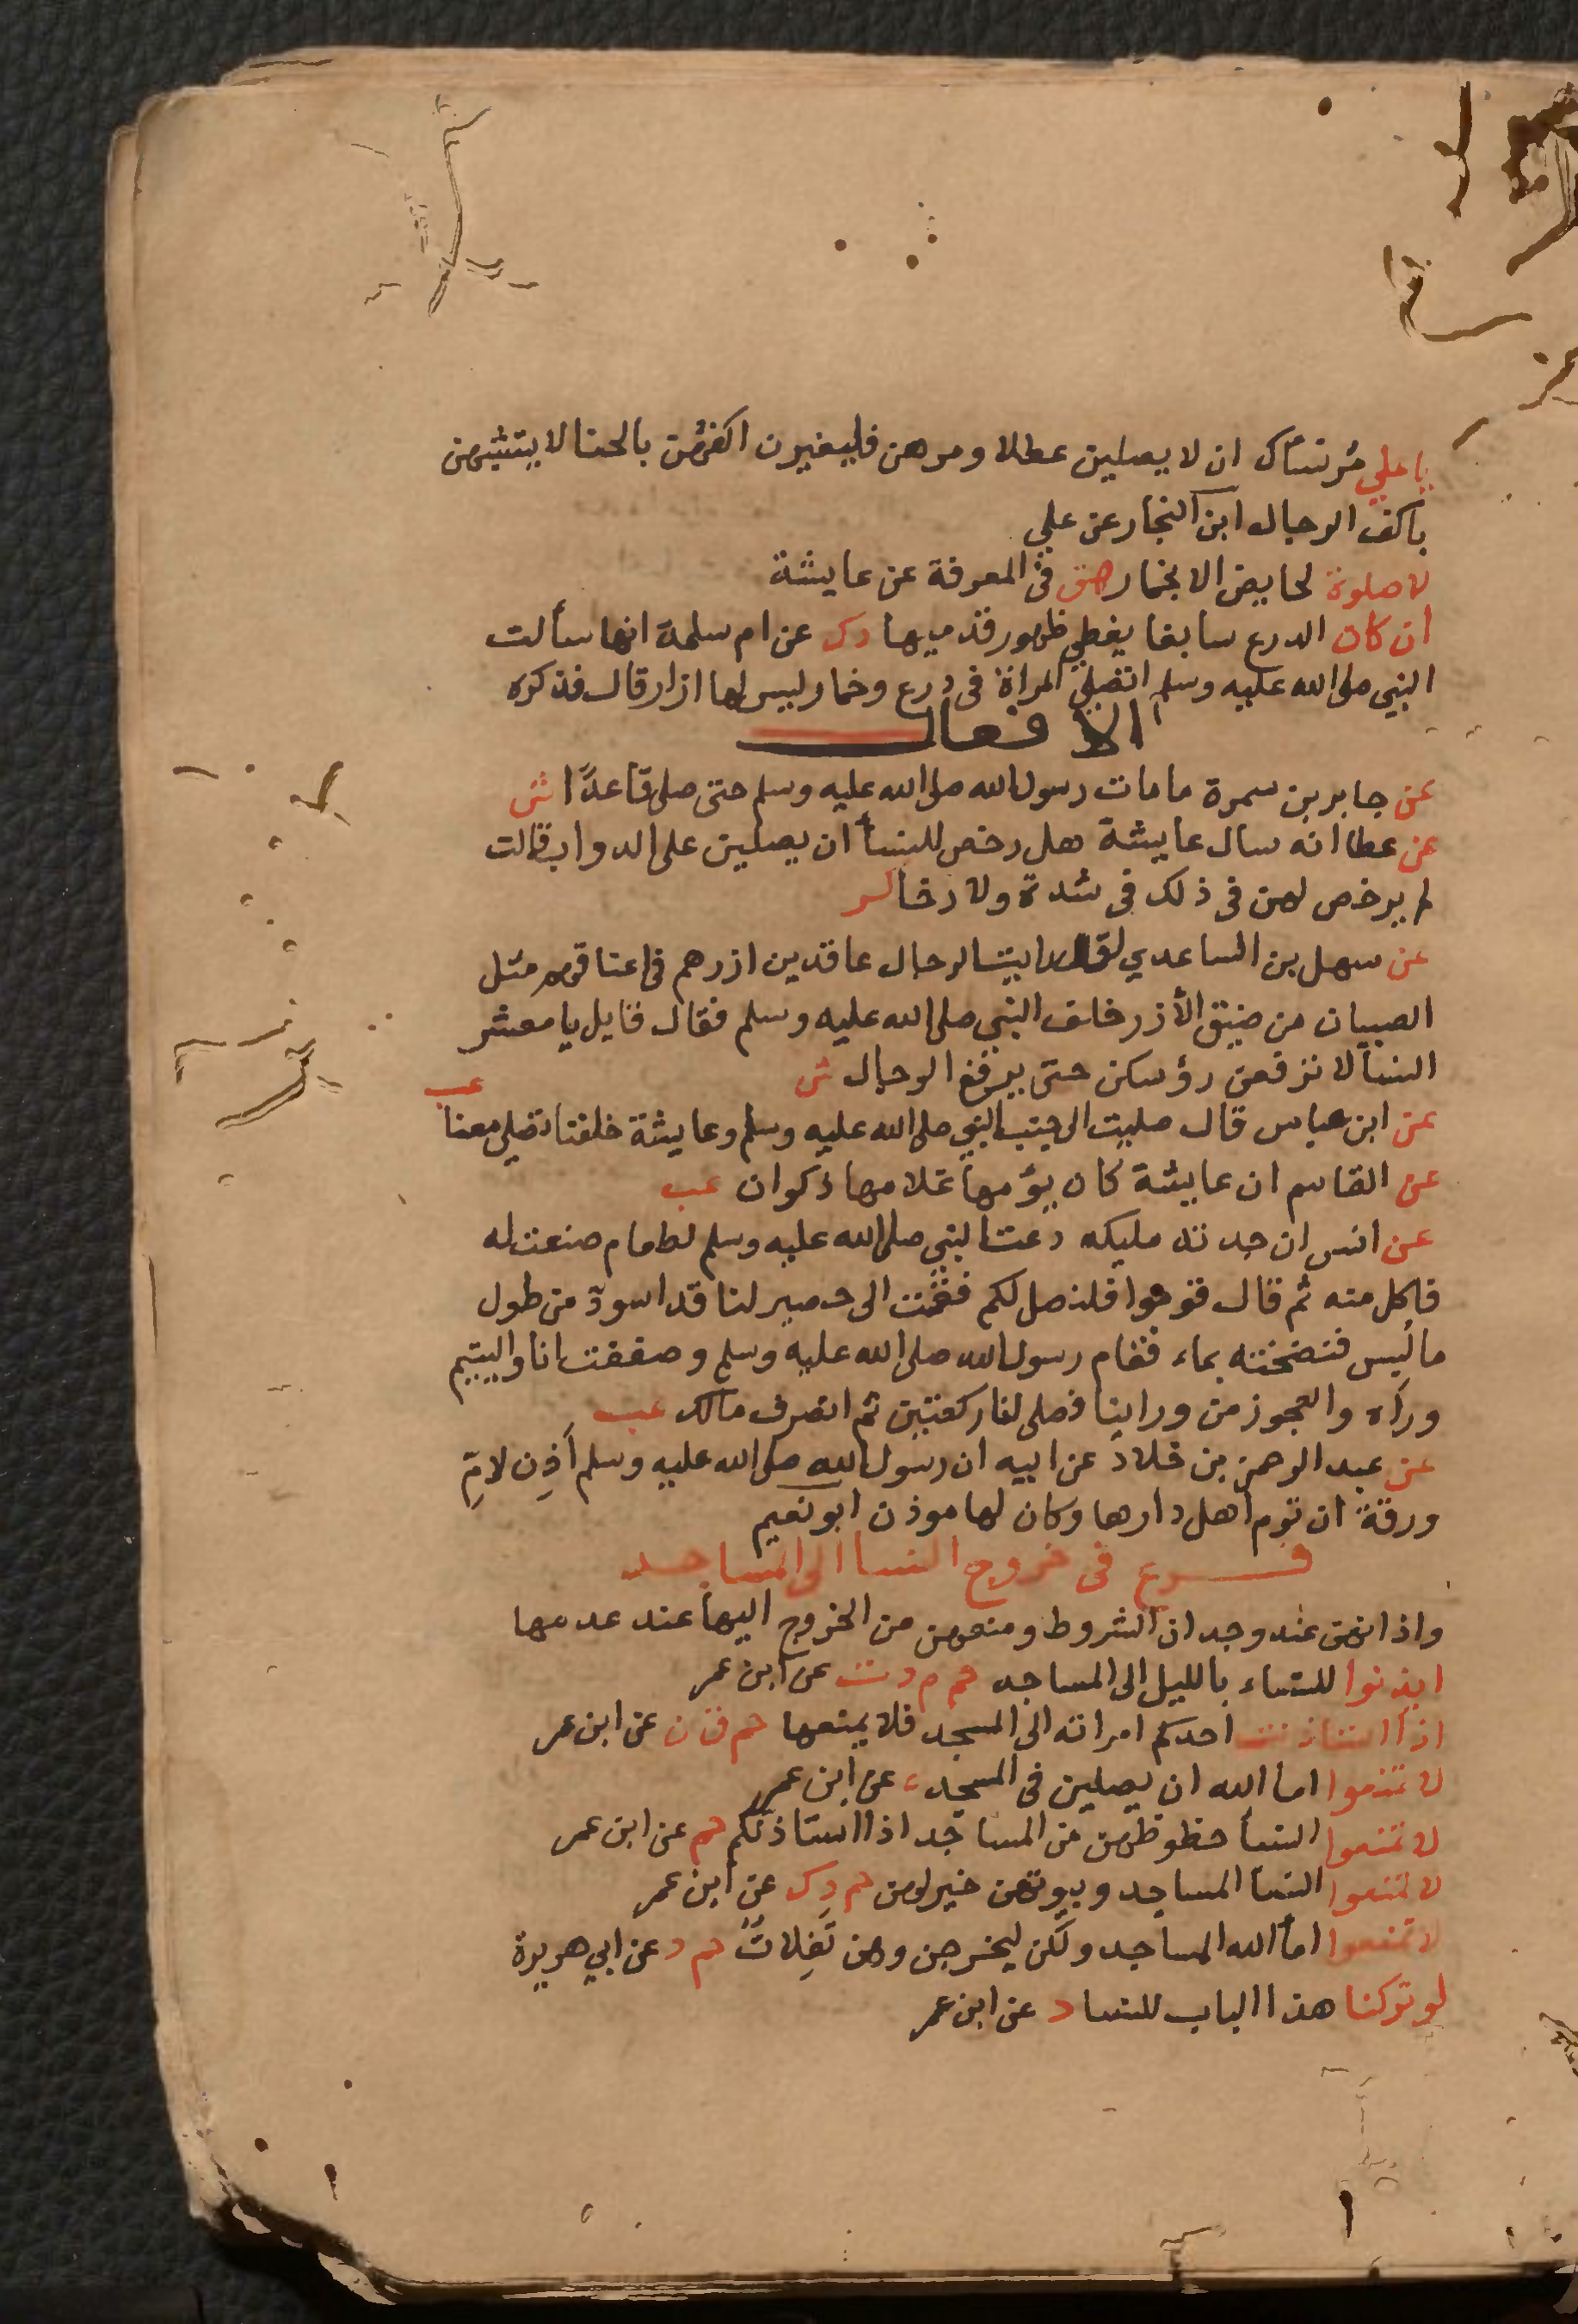 يا علي مر نساك ان لا يصلين عطلا ومرهن فليغيرن اكفهن بالحنا لا يتشبهن
باكف الرجال ابن النجار عن علي
لا صلوة لحايض الا بخمار هق في المعرفة عن عايشة
ان كان الدرع سابغا يغطي ظهور قدميها دك عن ام سلمة انها سألت
النبي صلى الله عليه وسلم اتصلي المراة في درع وخمار ليس لها ازار قال فذكره
الافعال
عن جابر بن سمرة ما مات رسول الله صلى الله عليه وسلم حتى صلى قاعدًا ش
عن عطا انه سال عايشة هل رخص للنسأ ان يصلين على الدواب قالت
لم يرخص لهن في ذلك في شدة ولا رخا كر
عن سهل بن الساعدي لقد رايت الرجال عاقدين ازرهم في اعناقهم مثل
الصبيان من ضيق الأزر خلف النبي صلى الله عليه وسلم فقال قايل يا معشر
النسأ لا ترفعن رؤسكن حتى يرفع الرجال ش
عن ابن عباس قال صليت الى جنب النبي صلى الله عليه وسلم وعايشة خلفنا تصلي معنا عب
عن القاسم ان عايشة كان يؤمها غلامها ذكوان عب
عن انس ان جدته مليكه دعت النبي صلى الله عليه وسلم لطعام صنعت له
فاكل منه ثم قال قوموا فلنصل لكم فقمت الى حصير لنا قد اسود من طول
ما لُبس فنضخته بماء فقام رسول الله صلى الله عليه وسلم وصففت انا واليتيم
ورأه والعجوز من وراينا فصلى لنا ركعتين ثم انصرف مالك عب
عن عبد الرحمن بن خلاد عن ابيه ان رسول الله صلى الله عليه وسلم أذِن لامِّ
ورقة ان توم اهل دارها وكان لها موذن ابو نعيم
فرع في خروج النسا الى المساجد
واذا نهن عند وجدان الشروط ومنعهن من الخروج اليها عند عدمها
ايذنوا للنساء بالليل الى المساجد حم م د ت عن ابن عمر
اذا استاذنت احدكم امراته الى المسجد فلا يمنعها حم ق ن عن ابن عمر
لا تمنعوا اما الله ان يصلين في المسجد ه عن ابن عمر
لا تمنعوا النسأ حظوظهن من المساجد اذا استاذنكم حم عن ابن عمر
لا تمنعوا النسأ المساجد وبيوتهن خير لهن حم د ك عن ابن عمر
لا تمنعوا امأ الله المساجد ولكن ليخرجن وهن تَفِلاتٌ حم د عن ابي هريرة
لو تركنا هذا الباب للنسا د عن ابن عمر